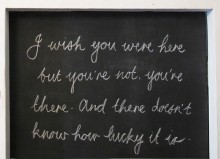 I wish you were here
but you're not. you're
there. And there doesn't
know how lucky it is.